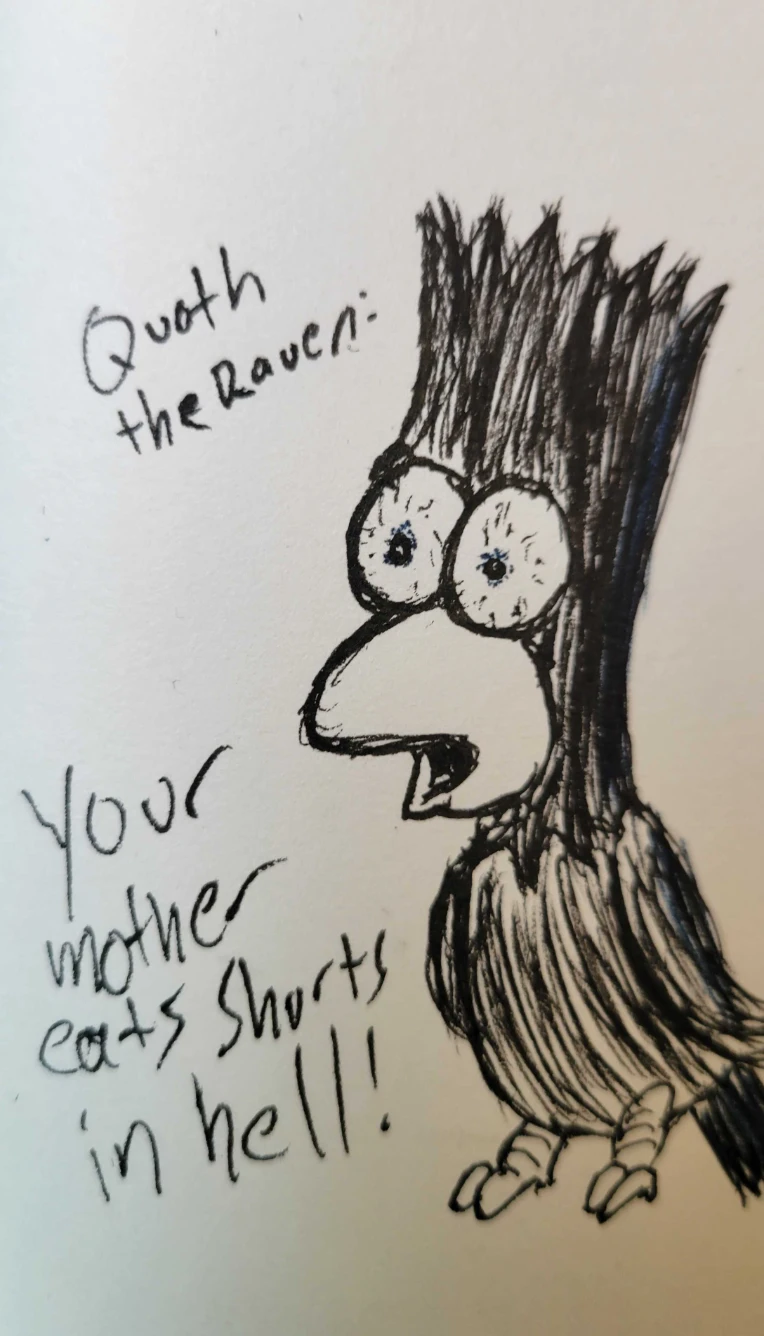 Quoth
the Raven:
Your
mother
eats shorts
in hell!